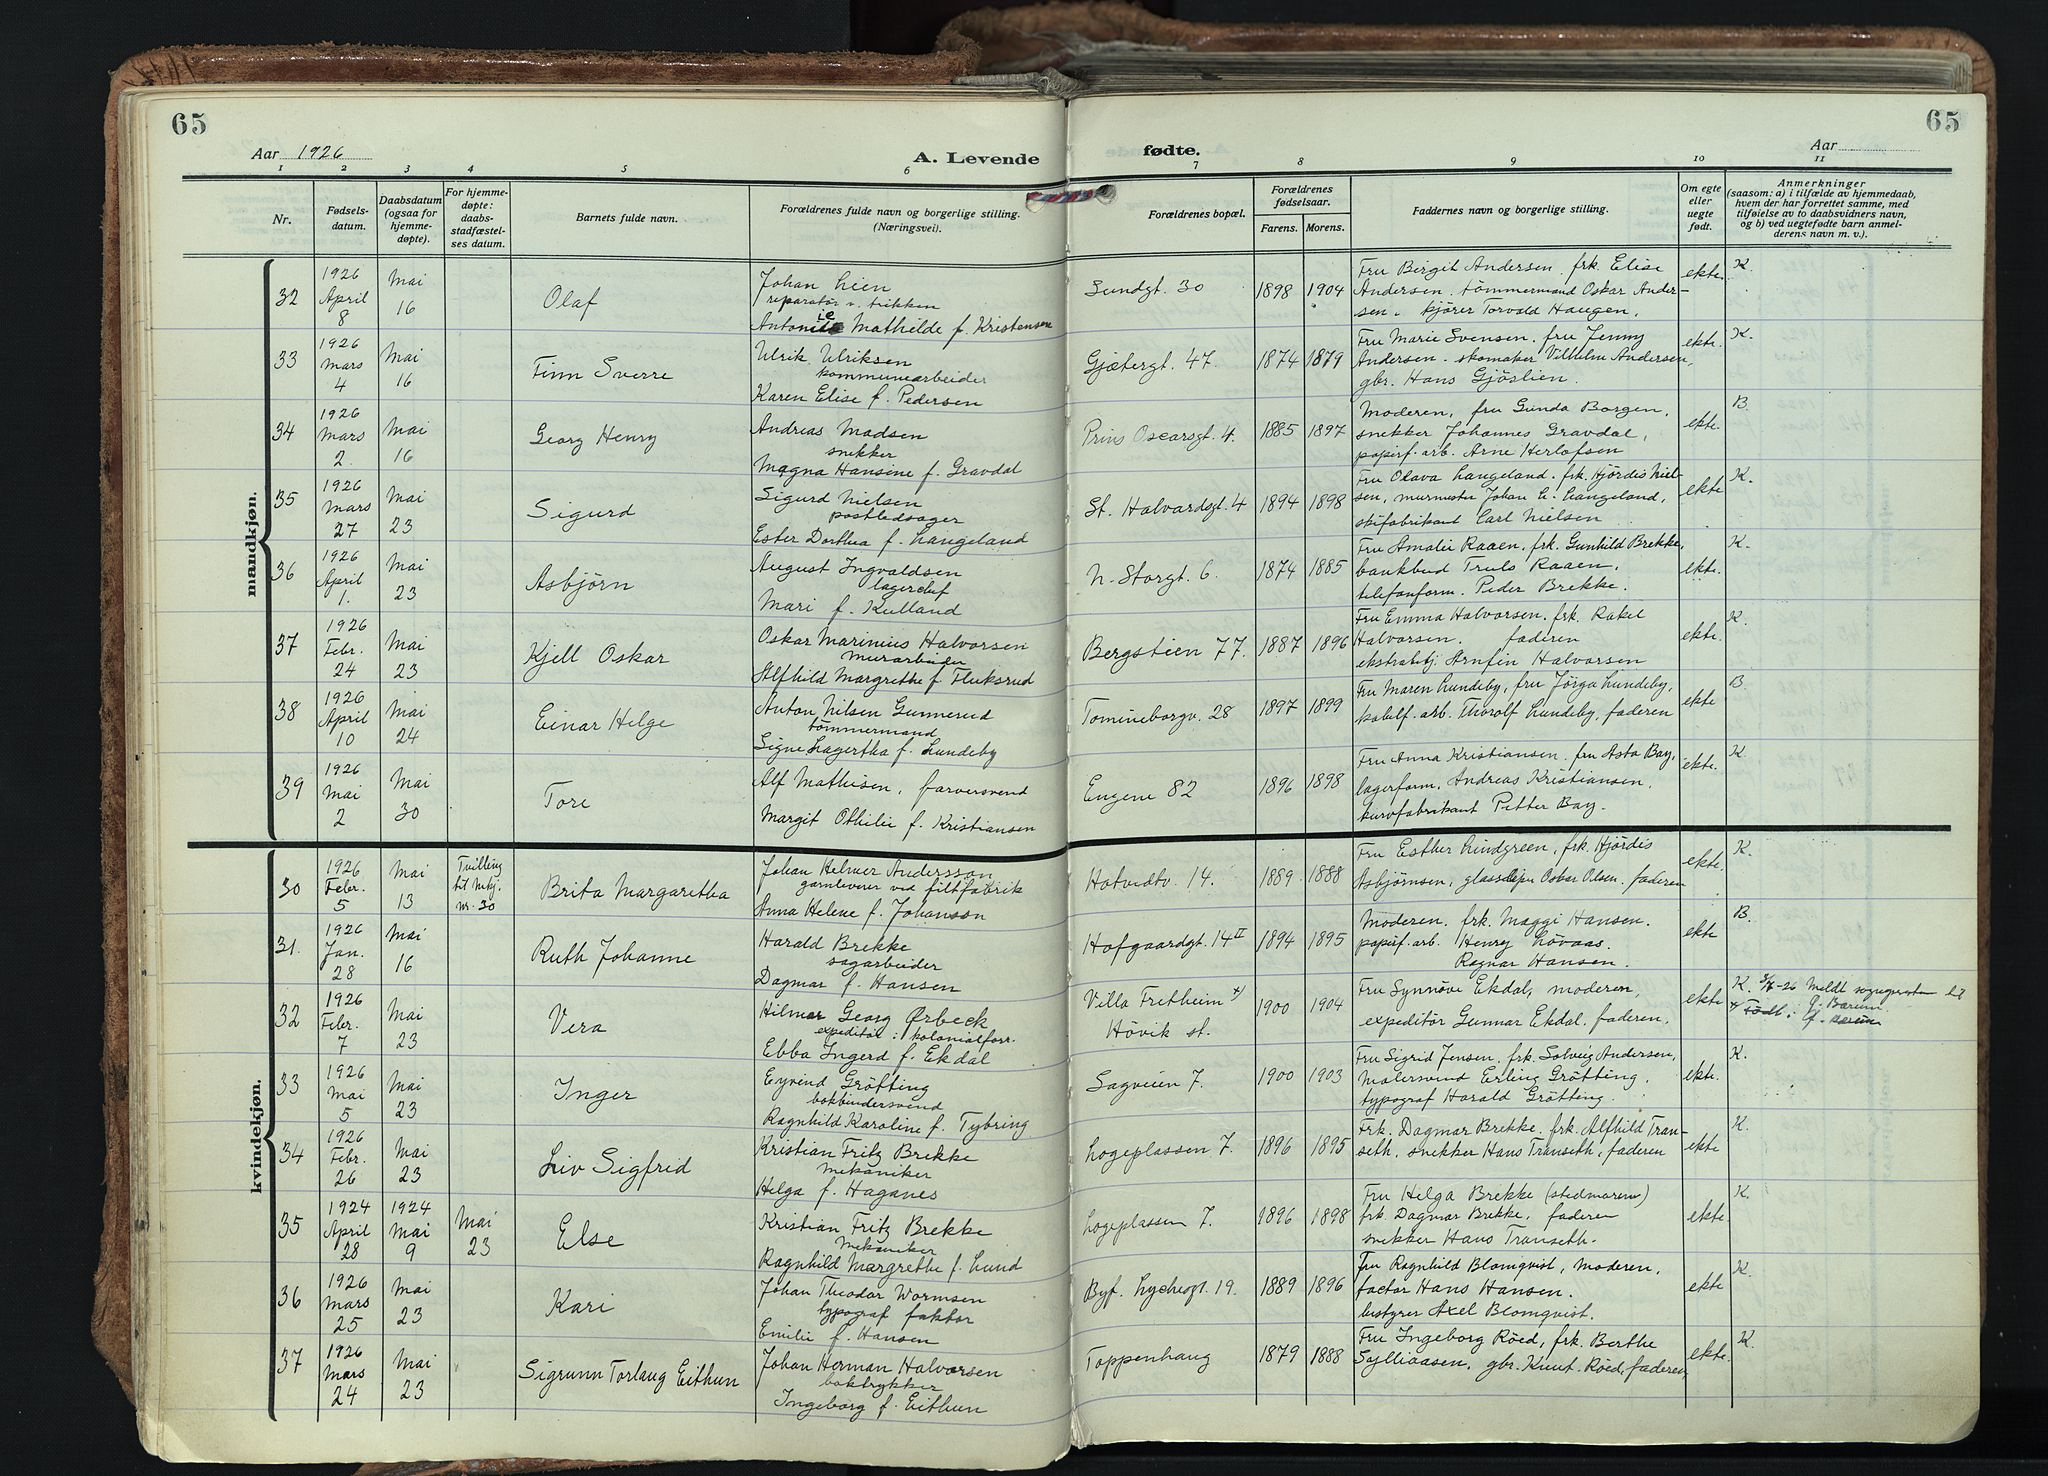 65
65
Aar 1926
A. Levende
fødte.
Aar
1 2 3 4 5 6 7 8 9 10 11
Nr.
Fødsels-
datum.
Daabsdatum
(ogsaa for
hjemme-
døpte).
For hjemme-
døpte:
daabs-
stadfæstel-
ses datum.
Barnets fulde navn.
Forældrenes fulde navn og borgerlige stilling.
(Næringsvei).
Forældrenes bopæl.
Forældrenes
fødselsaar.
Farens. Morens.
Faddernes navn og borgerlige stilling.
Om egte
eller
uegte
født.
Anmerkninger
(saasom: a) i tilfælde av hjemmedaab,
hvem der har forrettet samme, med
tilføielse av to daabsvidners navn,
og b) ved uegtefødte barn anmel-
derens navn m. v.).
mandkjøn.
32
1926
April
8
Mai
16
Olaf
Johan Lien
reparatør v. trikken
Antonie Mathilde f. Kristensen
Sundgt. 30
1898 1904
Fru Birgit Andersen. frk. Elise
Andersen. tømmermand Oskar Ander-
sen. kjører Torvald Haugen.
ekte.
K.
33
1926
Mars
4
Mai
16
Finn Sverre
Ulrik Ulriksen
kommunearbeider
Karen Elise f. Pedersen
Gjætergt. 47.
1874 1879
Fru Marie Svensen. fru Jenny
Andersen. skomaker Vilhelm Andersen,
gbr. Hans Gjøslien.
ekte.
K.
34
1926
Mars
2.
Mai
16
Georg Henry
Andreas Madsen
snekker
Magna Hansine f. Gravdal
Prins Oscarsgt. 4.
1885 1897
Moderen, fru Gunda Borgen,
snekker Johannes Gravdal,
papirf. arb. Arne Herlofsen
ekte.
B.
35
1926
Mars
27
Mai
23
Sigurd
Sigurd Nielsen
postledsager
Ester Dorthea f. Langeland
St. Halvardsgt. 4
1894 1898
Fru Olava Langeland. frk. Hjørdis Niel-
sen, murmester Johan L. Langeland,
skifabrikant Carl Nielsen
ekte
K.
36
1926
April
1.
Mai
23
Asbjørn
August Ingvaldsen
lagerchef
Mari f. Kulland
N. Storgt. 6.
1874 1885
Fru Amalie Raaen. frk. Gunhild Brekke,
bankbud Truls Raaen.
telefonform. Peder Brekke.
ekte.
K.
37
1926
Febr.
24
Mai
23
Kjell Oskar
Oskar Marinius Halvorsen
murarbeider
Alfhild Margrethe f. Fluksrud
Bergstien 77.
1887 1896
Fru Emma Halvorsen. frk. Rakel
Halvorsen. faderen
ekstrabetj. Arnfin Halvorsen
ekte.
K.
38
1926
April
10
Mai
24
Einar Helge
Anton Nilsen Gunnerud
tømmermand
Signe Lagertha f. Lundeby
Tomineborgv. 28
1897 1899
Fru Maren Lundeby, fru Jørga Lundeby,
kabelf. arb. Thorolf Lundeby, faderen
ekte
B.
39
1926
Mai
2
Mai
30
Tore
Alf Mathisen, farversvend
Margit Othilie f. Kristiansen
Engene 82
1896 1898
Fru Anna Kristiansen. fru Asta Bay,
lagerform. Andreas Kristiansen.
kurvfabrikant Petter Bay.
ekte.
K.
kvindekjøn.
30
1926
Febr.
5
Mai
13
Tvilling
til Mkj.
nr. 30
Brita Margaretha
Johan Helmer Andersson
garnleverer ved filtfabrik
Anna Helene f. Johanson
Hotvedtv. 14.
1889 1888
Fru Esther Lindgreen, frk. Hjørdis
Asbjørnsen, glassliper Oskar Olsen. faderen
ekte.
K.
31.
1926
Jan.
28
Mai
16
Ruth Johanne
Harald Brekke
sagarbeider
Dagmar f. Hansen
Hofgaardgt. 14 II
1894 1895
Moderen. frk. Maggi Hansen.
papirf. arb. Henry Løvaas.
Ragnar Hansen.
ekte
B.
32
1926
Febr.
7
Mai
23
Vera
Hilmar Georg Ørbeck
expeditør i kolonialforr.
Ebba Ingerd f. Ekdal
Villa Fretheim x)
Høvik st.
1900 1904
Fru Synnøve Ekdal, moderen,
expeditør Gunnar Ekdal. faderen.
ekte
K. 3/6-26 Meldt sognepresten til
Ø. Bærum.
x) Født i
33
1926
Mai
5
Mai
23
Inger
Eyvind Grøtting
bokbindersvend
Ragnhild Karoline f. Tybring
Sagveien 7.
1900 1903
Fru Sigrid Jensen. frk. Solveig Andersen,
Malersvend Erling Grøtting.
typograf Harald Grøtting.
ekte.
K.
34
1926
Febr.
26
Mai
23
Liv Sigfrid
Kristian Fritz Brekke
mekaniker
Helga f. Haganes
Logeplassen 7.
1896 1895
Frk. Dagmar Brekke. frk. Alfhild Tran-
seth, snekker Hans Transeth, faderen
ekte
K.
35
1924
April
28
1924
Mai
9
Mai
23
Else
Kristian Fritz Brekke
Mekaniker
Ragnhild Margrethe f. Lund
Logeplassen 7.
1896 1898
Fru Helga Brekke (stedmoren)
frk. Dagmar Brekke, faderen
snekker Hans Transeth.
ekte
K.
36
1926
Mars
25
Mai
23
Kari
Johan Theodor Wormsen
typograf faktor
Emilie f. Hansen
Byf. Lychesgt. 19.
1889 1896
Fru Ragnhild Blomqvist, Moderen.
factor Hans Hansen.
bestyrer Axel Blomqvist.
ekte
K.
37
1926
Mars
24
Mai
23
Sigrunn Torlaug Eithun
Johan Herman Halvorsen
boktrykker
Ingeborg f. Eithun
Toppenhaug
1879 1888
Fru Ingeborg Røed, frk. Berthe
Sylliaasen, gbr. Knut Røed, faderen.
ekte.
K.